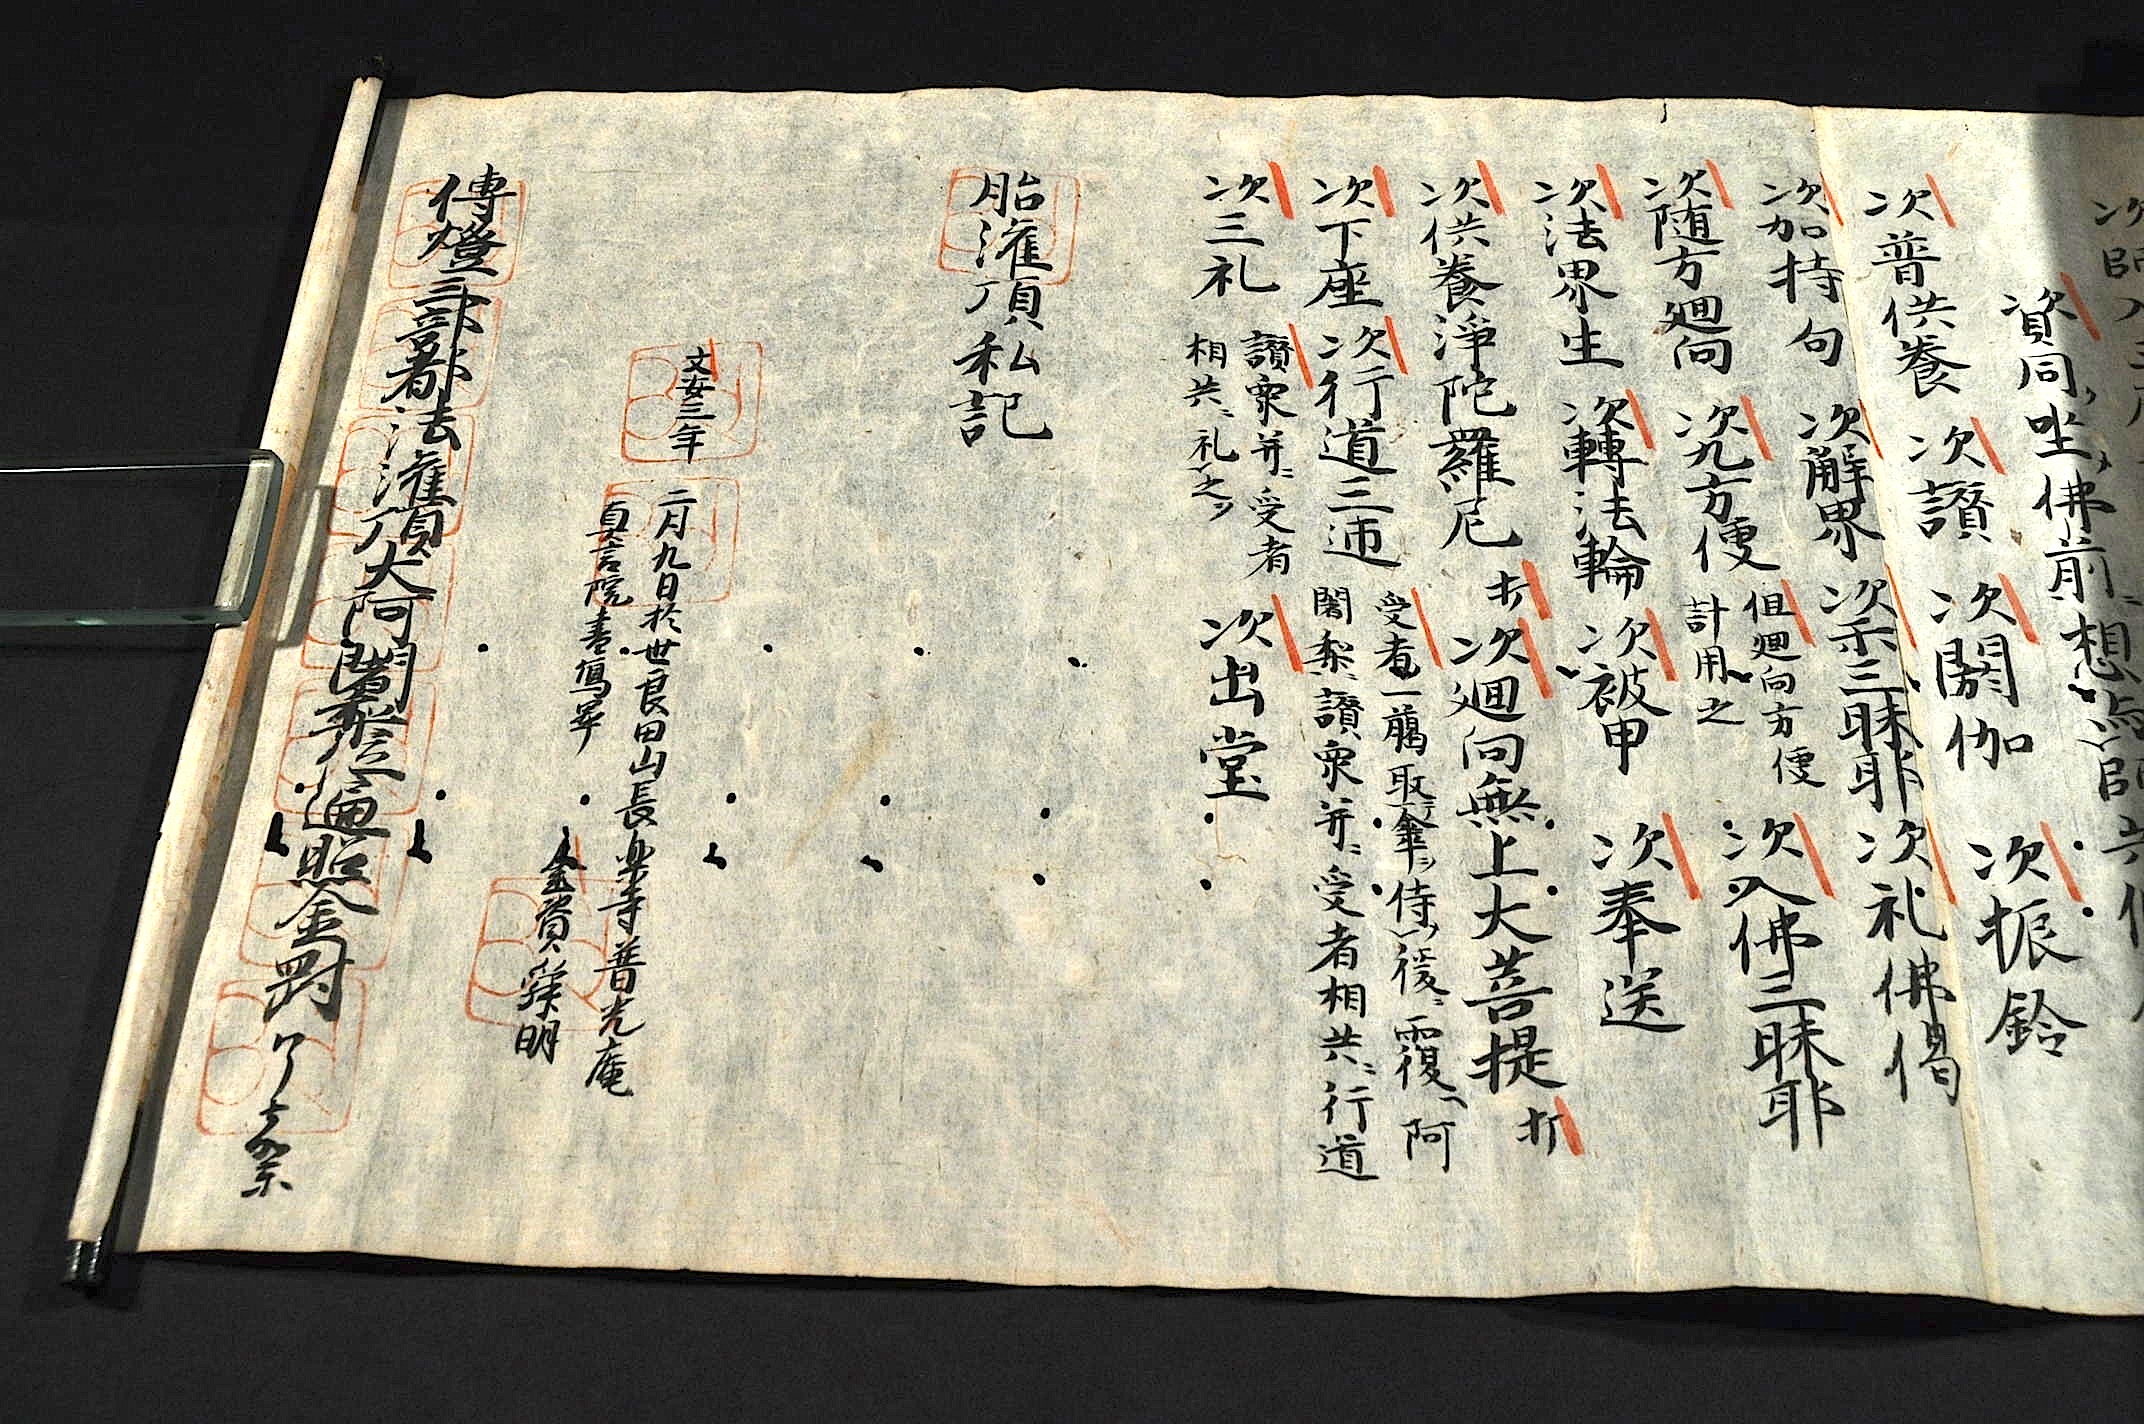 資同ク坐佛前ニ想
次普供養 次讃 次閼伽 次振鈴
次加持句 次解界 次示三昧耶 次礼佛偈
次随方廻向 次九方便 但廻向方便
計用之 次入佛三昧耶
次法界生 次轉法輪 次被甲 次奉送
次供養淨陀羅尼 打 次廻向無上大菩提 打
次下座 次行道三迊 受者一﨟取傘ヲ侍ヘリ後ニ覆ヘ阿
闍梨ニ讃衆并ニ受者相共ニ行道
次三礼 讃衆并ニ受者
相共ニ礼之ヲ 次出堂
胎灌頂私記
文安三年二月九日於世良田山長楽寺普光庵
真言院書寫畢
金資榮明
傳燈三部都法灌頂大阿闍梨遍照金剛了